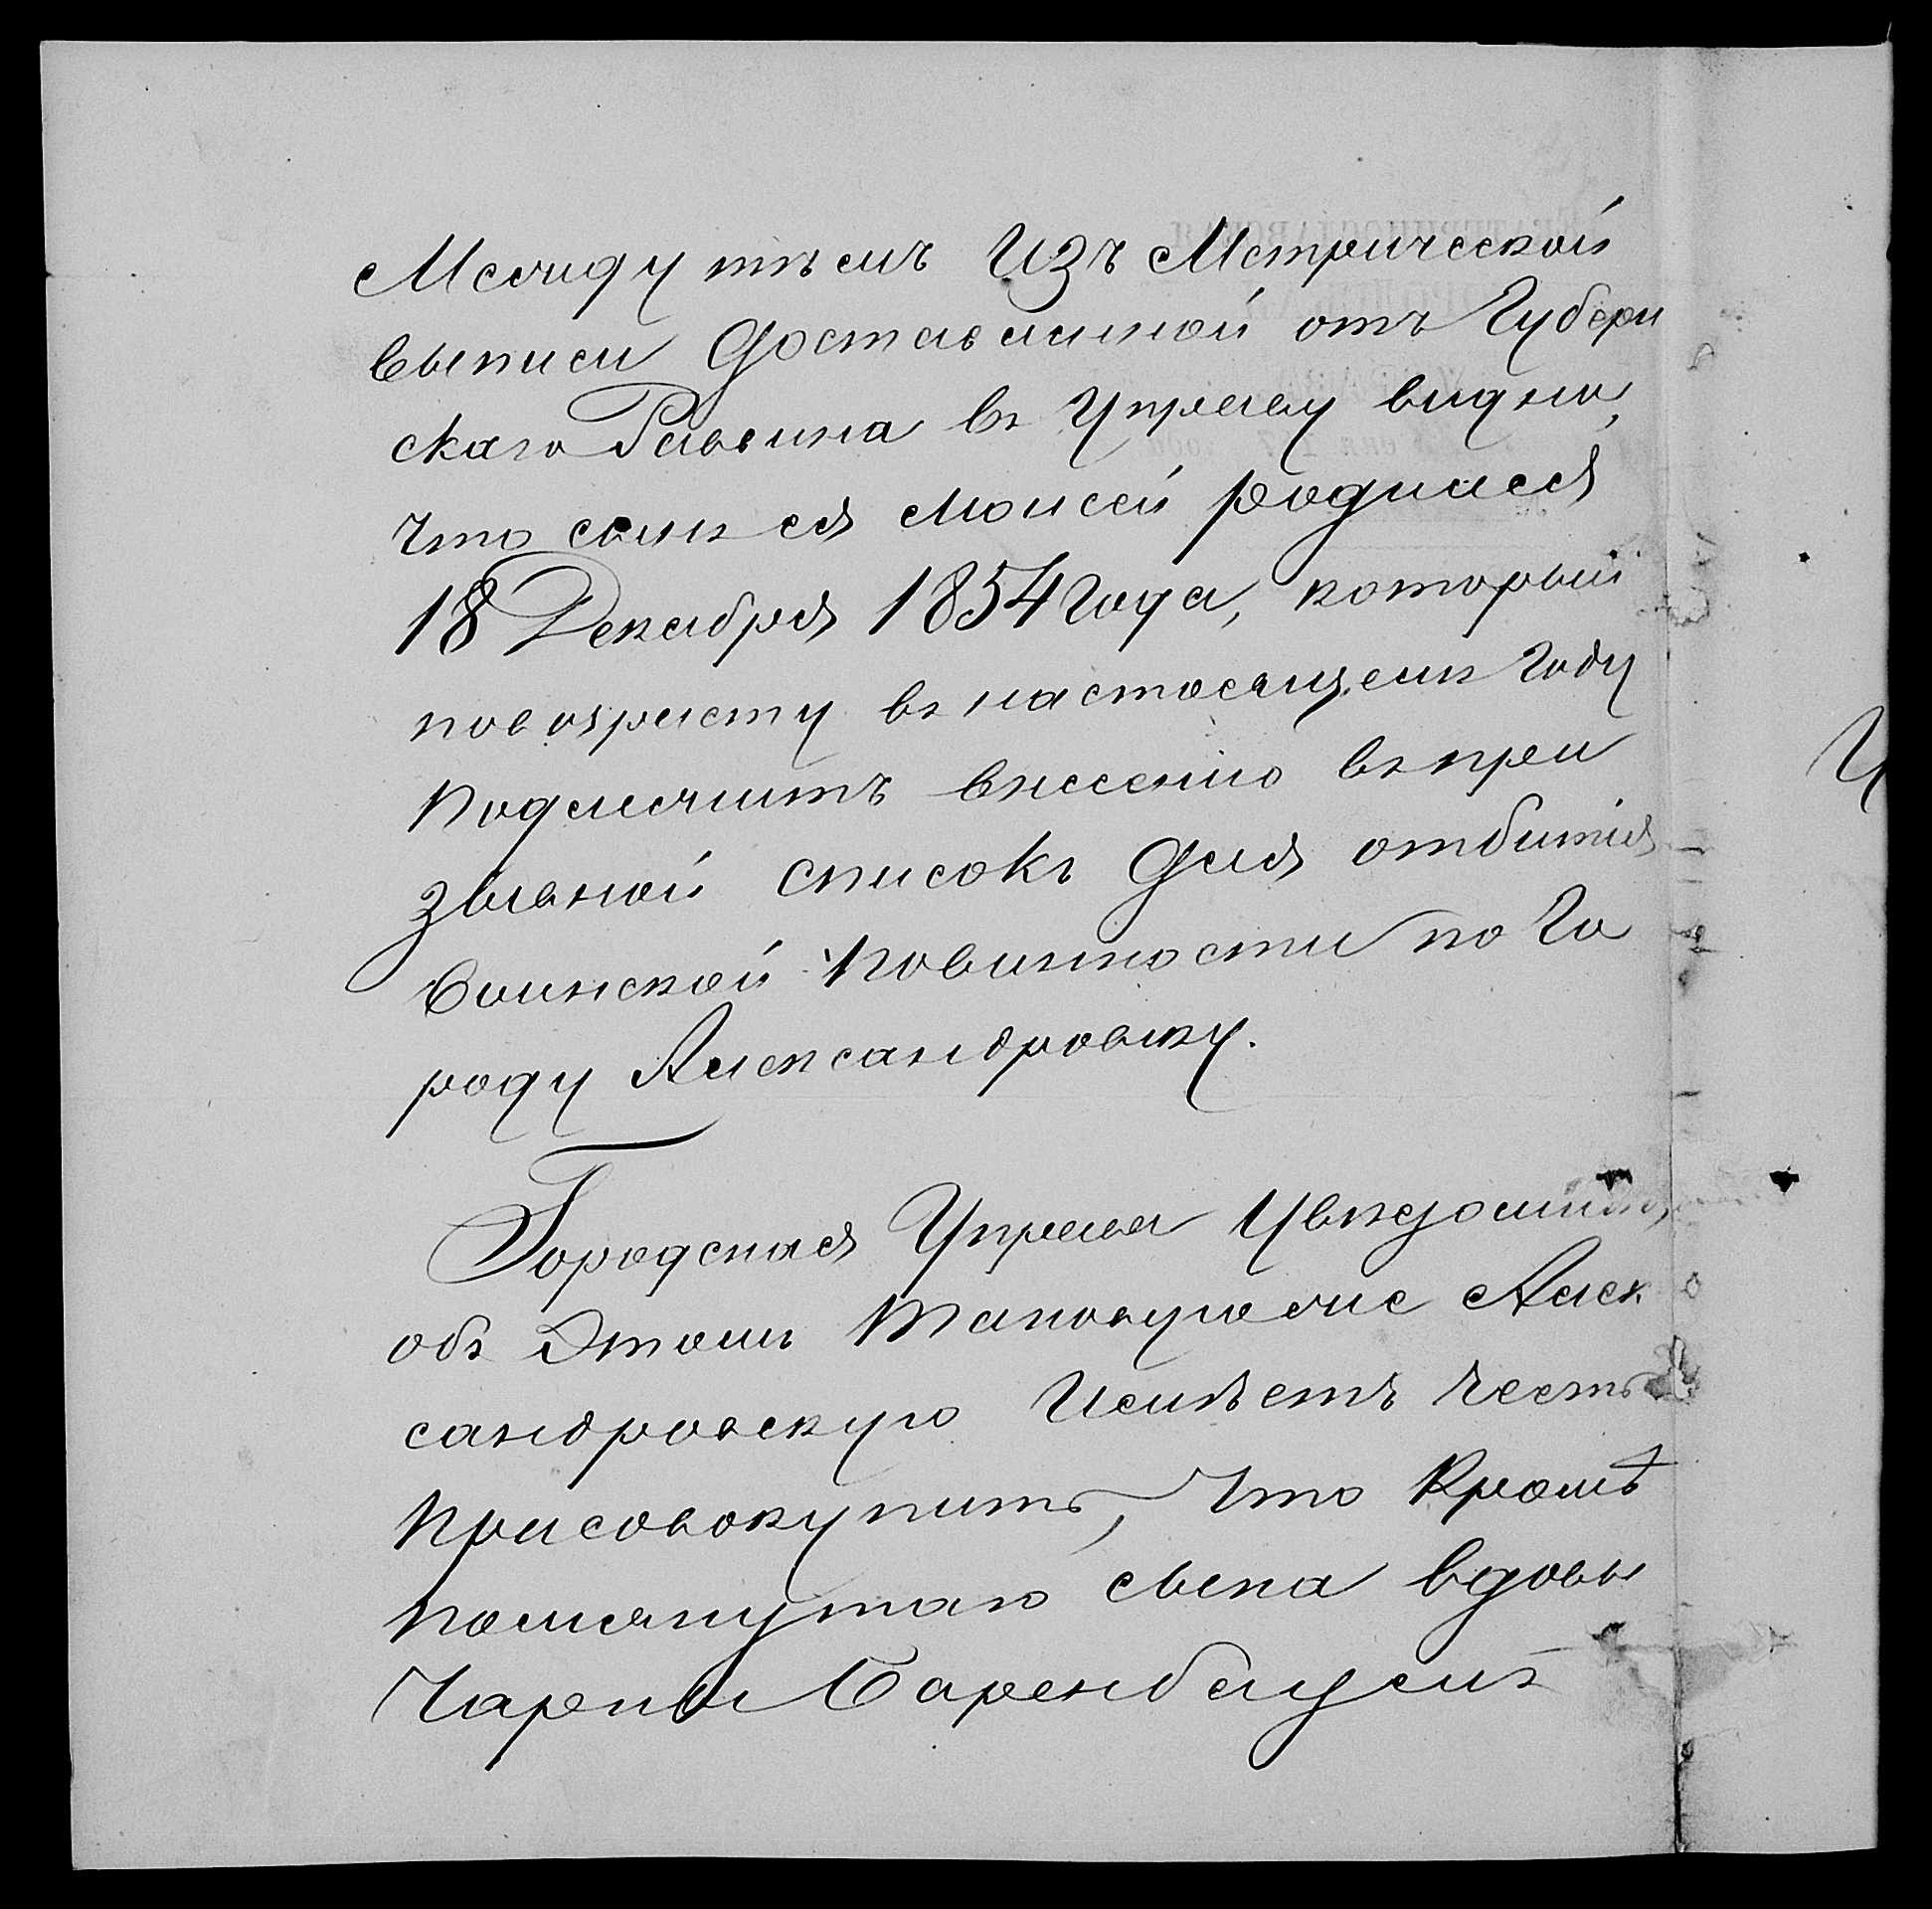 Между тѣмъ Изъ Метрической
выписи доставленной отъ Губерн
скаго Раввина въ Управу видно,
что сынъ ея Моисей родился
18 Декабря 1854 Года, который
по возрасту въ настоящемъ Году
подлежитъ внесенію въ при
зывной списокъ для отбытія
Воинской повинности по Го
роду Александровску.
Городская Управа Увѣдомляя,
объ Этомъ таковую же Алек
сандровскую Имѣетъ Честь
присовокупить, Что Кромѣ
помянутаго сына вдовы
Чарны Баренбаумъ